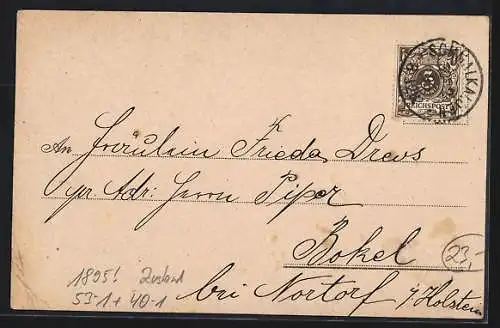 3
REICHSPOST
An Fräulein Frieda Drews
pr. Adr: Herrn Piper
Bokel
bei Nortorf i/Holstein
23,-
1895! Zustand
53-1 + 40-1